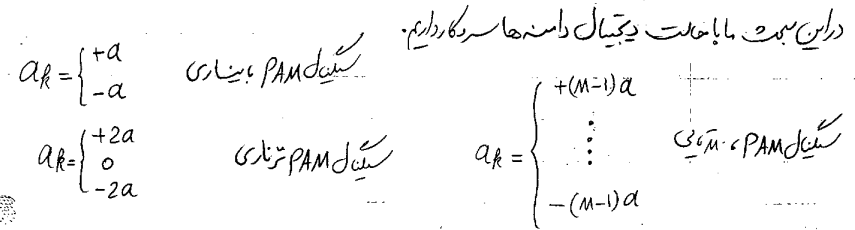 در این مبحث ما با حالت دیجیتال دامنه ها سروکار داریم.
سیگنال PAM بایناری aₖ = { +a
-a
سیگنال PAM ترناری aₖ = { +2a
0
-2a
سیگنال PAM، M تایی aₖ = { +(M-1)a
⋮
-(M-1)a